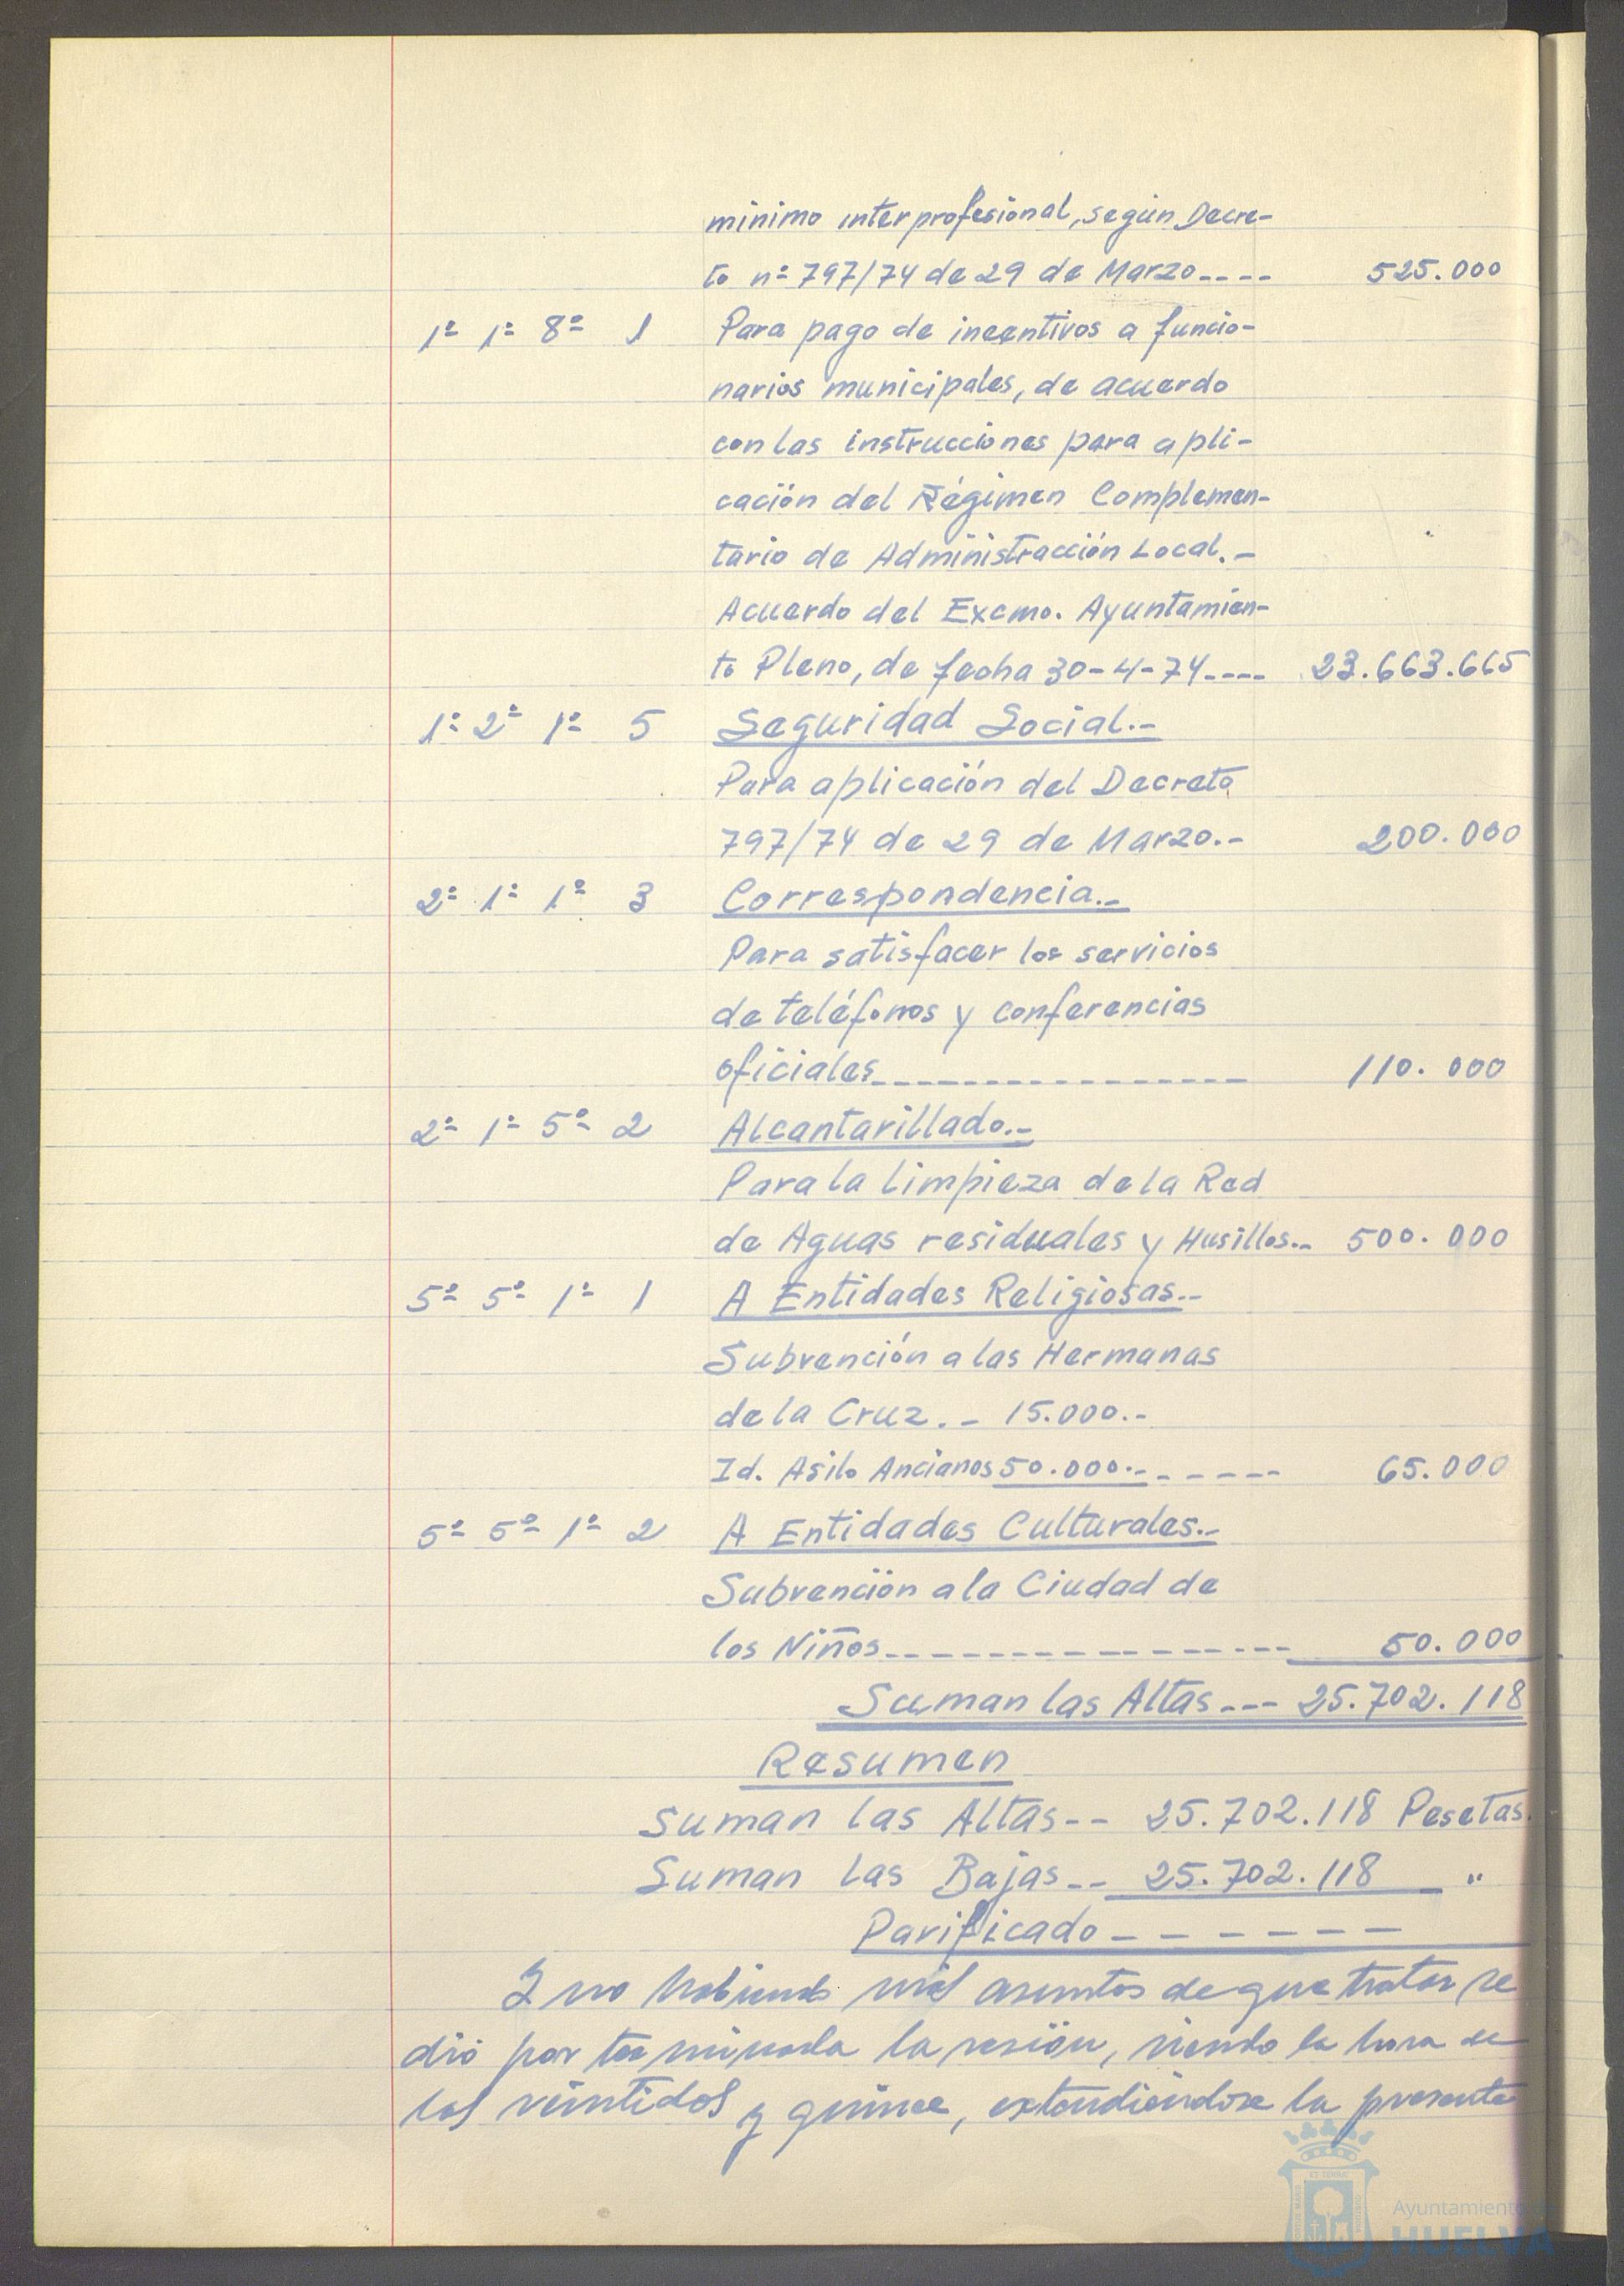 minimo interprofesional, según Decre-
to nº 797/74 de 29 de Marzo---- 525.000
1º 1º 8º 1 Para pago de incentivos a funcio-
narios municipales, de acuerdo
con las instrucciones para apli-
cación del Régimen Complemen-
tario de Administracción Local.-
Acuerdo del Excmo. Ayuntamien-
to Pleno, de fecha 30-4-74---- 23.663.665
1º 2º 1º 5 Seguridad Social.-
Para aplicación del Decreto
797/74 de 29 de Marzo.- 200.000
2º 1º 1º 3 Correspondencia.-
Para satisfacer los servicios
de teléfonos y conferencias
oficiales---------------- 110.000
2º 1º 5º 2 Alcantarillado.-
Para la limpieza de la Red
de Aguas residuales y Husillos.- 500.000
5º 5º 1º 1 A Entidades Religiosas.-
Subvención a las Hermanas
de la Cruz.- 15.000.-
Id. Asilo Ancianos 50.000.------ 65.000
5º 5º 1º 2 A Entidades Culturales.-
Subvención a la Ciudad de
los Niños---------------- 50.000
Suman las Altas--- 25.702.118
Resumen
Suman las Altas-- 25.702.118 Pesetas.
Suman las Bajas-- 25.702.118 "
Parificado-------
Y no habiendo más asuntos de que tratar se
dió por terminada la sesión, siendo la hora de
las veintidos y quince, extendiéndose la presente
Ayuntamiento de
HUELVA